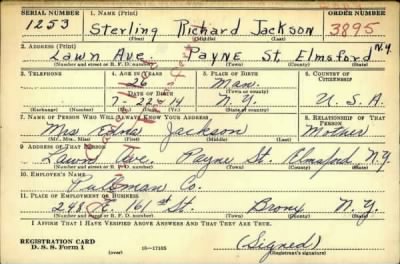 SERIAL NUMBER 1. NAME (Print) ORDER NUMBER
1253 Sterling Richard Jackson 3895
(First) (Middle) (Last)
2. ADDRESS (Print)
Lawn Ave. Payne St. Elmsford N.Y.
(Number and street or R. F. D. number) (Town) (County) (State)
3. TELEPHONE 4. AGE IN YEARS 5. PLACE OF BIRTH 6. COUNTRY OF CITIZENSHIP
26 Man.
DATE OF BIRTH (Town or county)
7-22-14 N.Y. U.S.A
(Exchange) (Number) (Mo.) (Day) (Yr.) (State or country)
7. NAME OF PERSON WHO WILL ALWAYS KNOW YOUR ADDRESS 8. RELATIONSHIP OF THAT PERSON
Mrs Edna Jackson Mother
(Mr., Mrs., Miss) (First) (Middle) (Last)
9. ADDRESS OF THAT PERSON
Lawn Ave. Payne St. Elmsford N.Y.
(Number and street or R. F. D. number) (Town) (County) (State)
10. EMPLOYER'S NAME
Pullman Co.
11. PLACE OF EMPLOYMENT OR BUSINESS
248 E. 161st St. Bronx N.Y.
(Number and street or R. F. D. number) (Town) (County) (State)
I AFFIRM THAT I HAVE VERIFIED ABOVE ANSWERS AND THAT THEY ARE TRUE.
REGISTRATION CARD
D. S. S. Form 1 (over) 16—17105 (Signed)
(Registrant's signature)